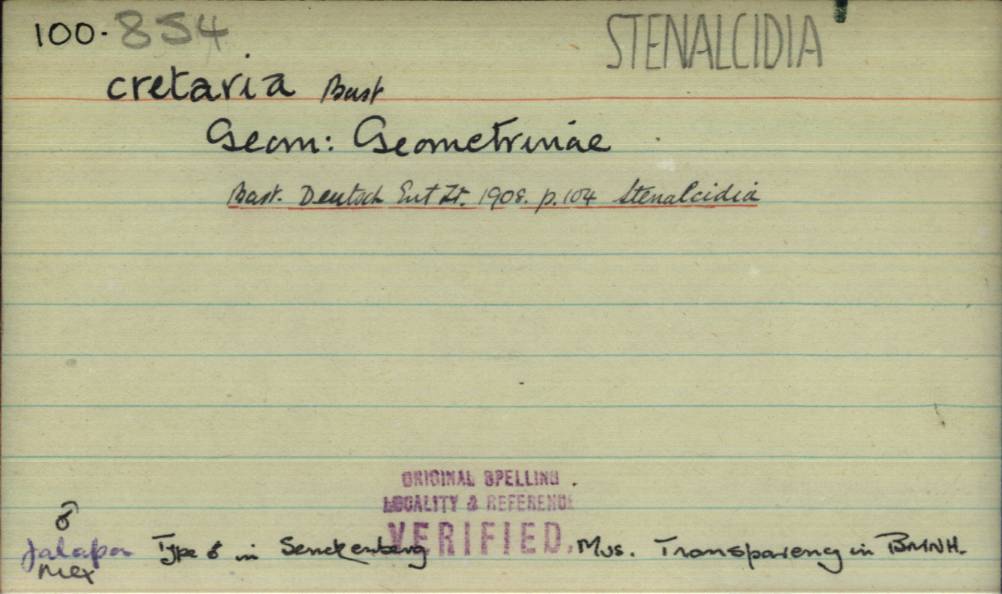 100.854
STENALCIDIA
cretaria Bast
Geom: Geometrinae
Bast. Deutsch Ent Zt. 1908. p.104 Stenalcidia
ORIGINAL SPELLING
LOCALITY & REFERENCE
VERIFIED.
♂
Jalapa
Mex
Type ♂ in Senckenberg Mus. Transparency in BMNH.